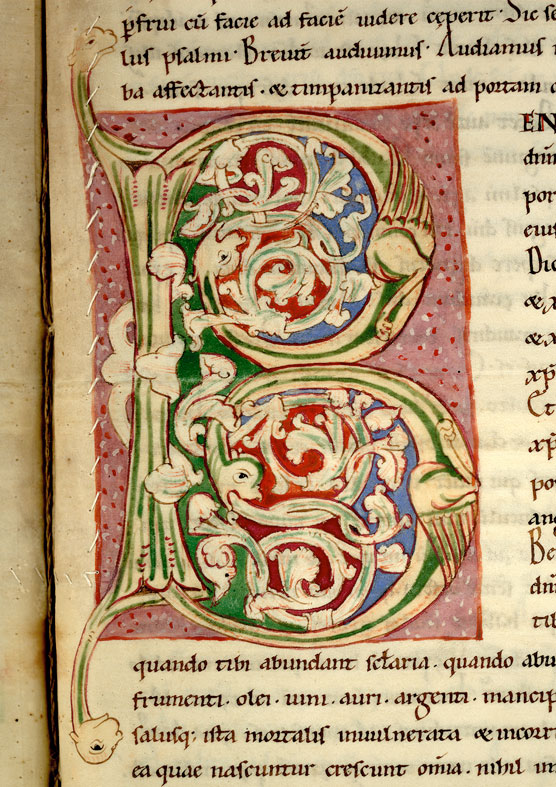 pfrui cū facie ad faciē uidere ceperit · Sic se
lus psalmi · Breuit audiuimus · Audiamus
ba affectantis · & timpanizantis ad portam
B EN
dn̄m
por
eius
Dic
& x
& a
xp̄
Et
xp̄
po
ang
Be
dn̄
tib
quando tibi abundant sełaria · quando abu
frumenti · olei · uini · auri · argenti · mancip
salusq; ista mortalis inuulnerata & incorr
ea quae nascuntur crescunt om̄ia · nihil im